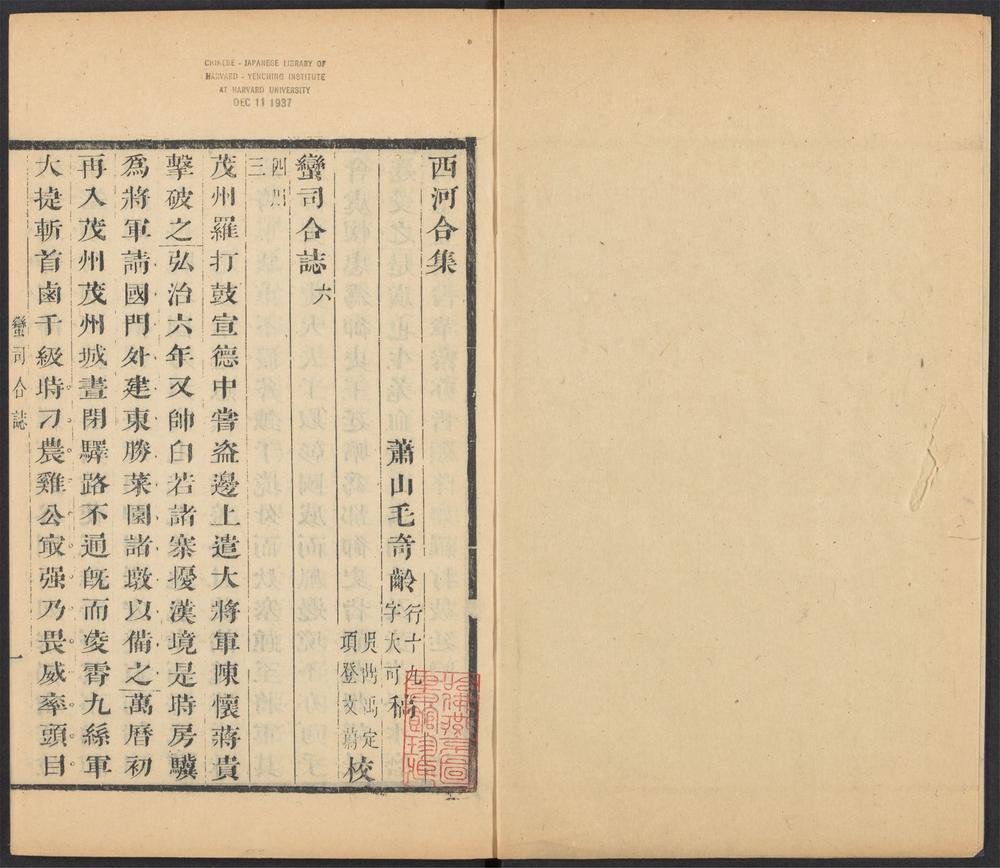 CHINESE - JAPANESE LIBRARY OF
HARVARD - YENCHING INSTITUTE
AT HARVARD UNIVERSITY
DEC 11 1937
西河合集
蕭山毛奇齡字大可行十九稿
吳鼎定
項登校
蠻司合誌六
四川三
茂州羅打鼓宣德中嘗盗邊上遣大將軍陳懷蔣貴
擊破之弘治六年又帥白若諸寨擾漢境是時房驥
爲將軍請國門外建東勝菜園諸墩以備之萬曆初
再入茂州茂州城晝閉驛路不通旣而凌霄九絲軍
大捷斬首鹵千級時刁農雞公㝡强乃畏威率頭目
蠻司合誌
一